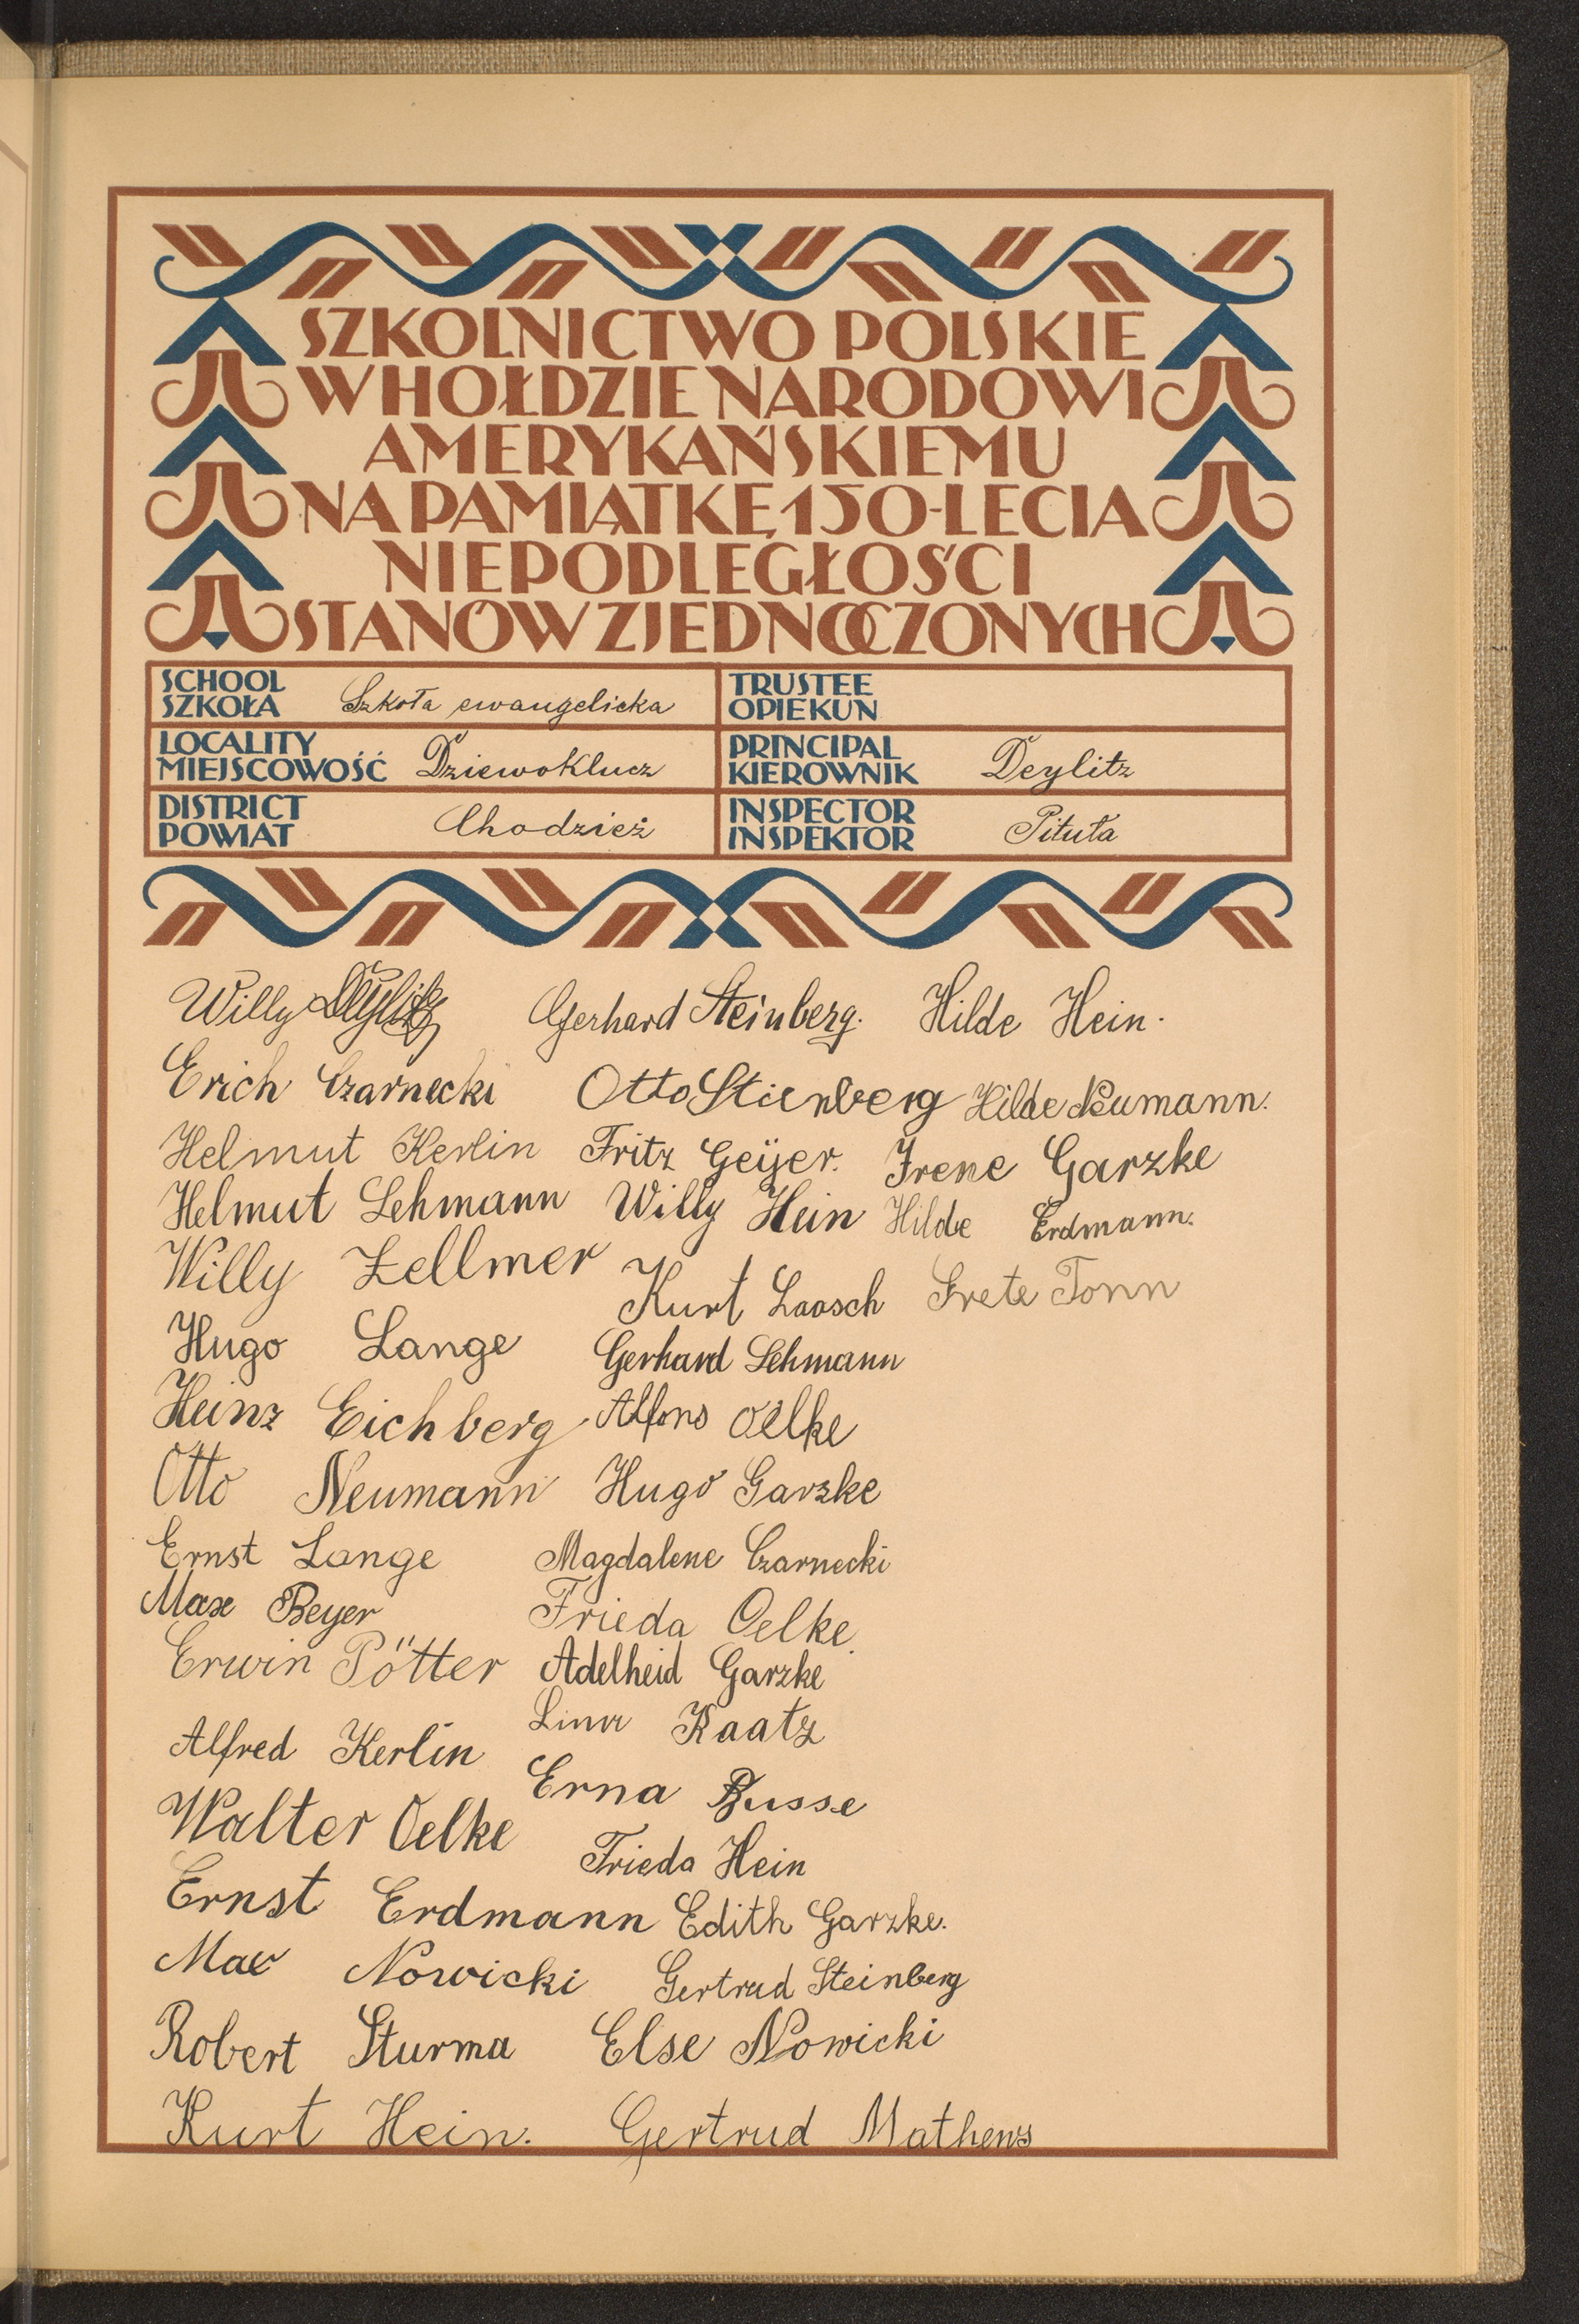 SZKOLNICTWO POLSKIE
W HOŁDZIE NARODOWI
AMERYKAŃSKIEMU
NA PAMIĄTKĘ 150-LECIA
NIEPODLEGŁOŚCI
STANÓW ZJEDNOCZONYCH
SCHOOL
SZKOŁA Szkoła ewangelicka
TRUSTEE
OPIEKUN
LOCALITY
MIEJSCOWOŚĆ Dziewoklucz
PRINCIPAL
KIEROWNIK Deylitz
DISTRICT
POWIAT Chodzież
INSPECTOR
INSPEKTOR Pituła
Willy Deylitz Gerhard Steinberg. Hilde Hein.
Erich Czarnecki Otto Stienberg Hilde Neumann.
Helmut Kerlin Fritz Geÿer. Irene Garzke
Helmut Lehmann Willy Hein Hilde Erdmann.
Willy Zellmer Kurt Laasch Grete Tonn
Hugo Lange Gerhard Lehmann
Heinz Eichberg Alfons Oelke
Otto Neumann Hugo Garzke
Ernst Lange Magdalene Czarnecki
Max Beyer Frieda Oelke.
Erwin Pötter Adelheid Garzke
Alfred Kerlin Lina Kaatz
Walter Oelke Erna Busse
Frieda Hein
Ernst Erdmann Edith Garzke.
Max Nowicki Gertrud Steinberg
Robert Sturma Else Nowicki
Kurt Hein. Gertrud Mathews